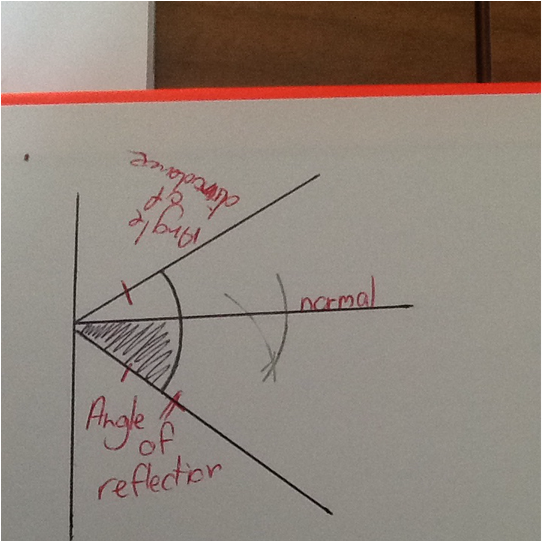 Angle
of
normal
Angle
of
reflection